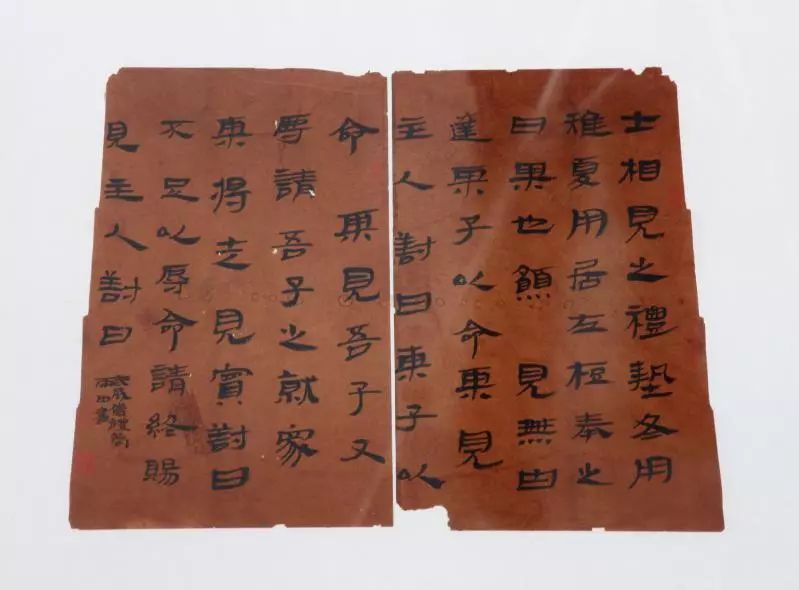 士相見之禮摯冬用
雉夏用居左梪奉之
曰某也願見無由
達某子以命某見
主人對曰某子以
命某見吾子又
辱請吾子之就家
某得走見賓對曰
不足以辱命請終賜
見主人對曰
武威儀禮簡